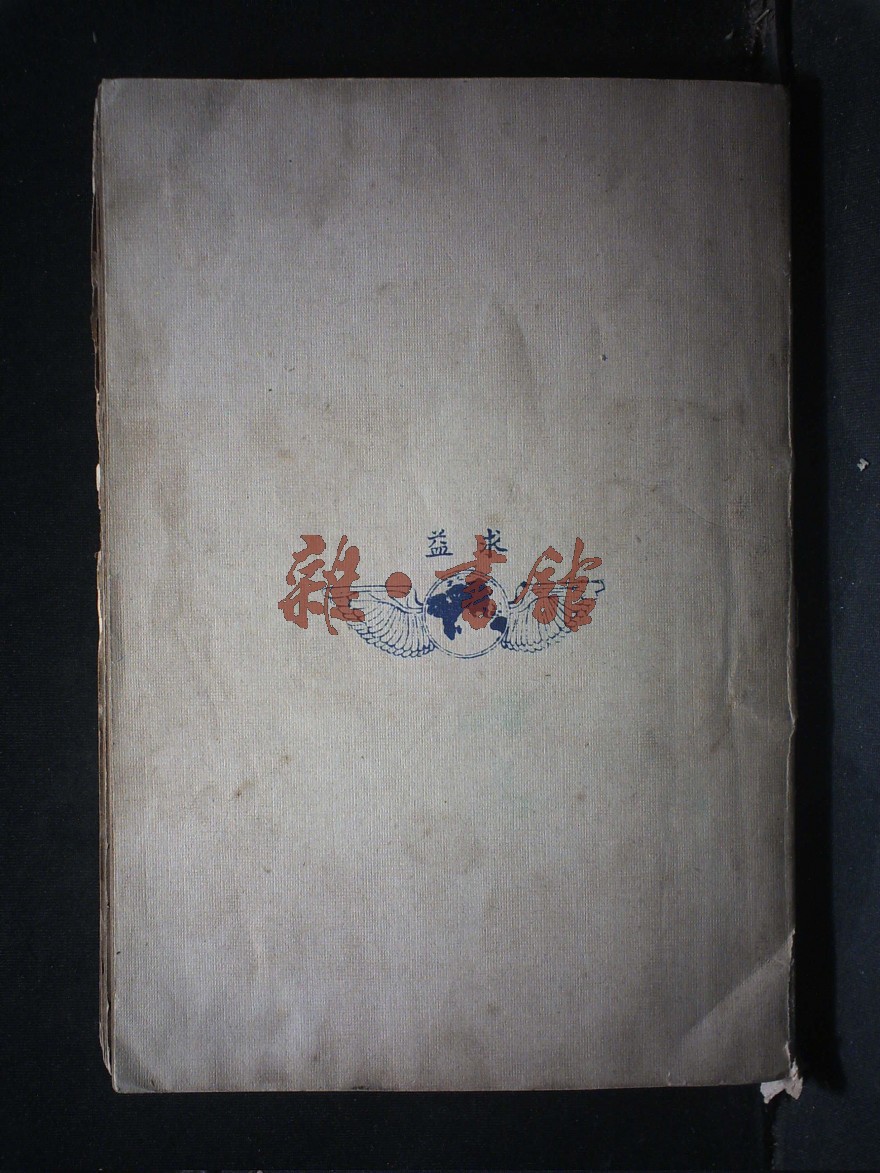 求益
雜·書館